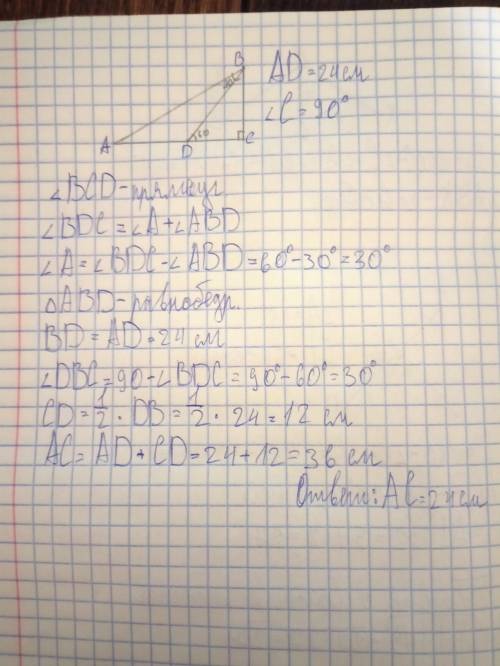 B
30°
AD = 24 см
∠C = 90°
A
D
60
C
∠BCD - прямоуг.
∠BDC = ∠A + ∠ABD
∠A = ∠BDC - ∠ABD = 60° - 30° = 30°
△ABD - равнобедр.
BD = AD = 24 см
∠DBC = 90 - ∠BDC = 90° - 60° = 30°
CD = 1/2 · DB = 1/2 · 24 = 12 см
AC = AD + CD = 24 + 12 = 36 см
Ответ: AC = 24 см